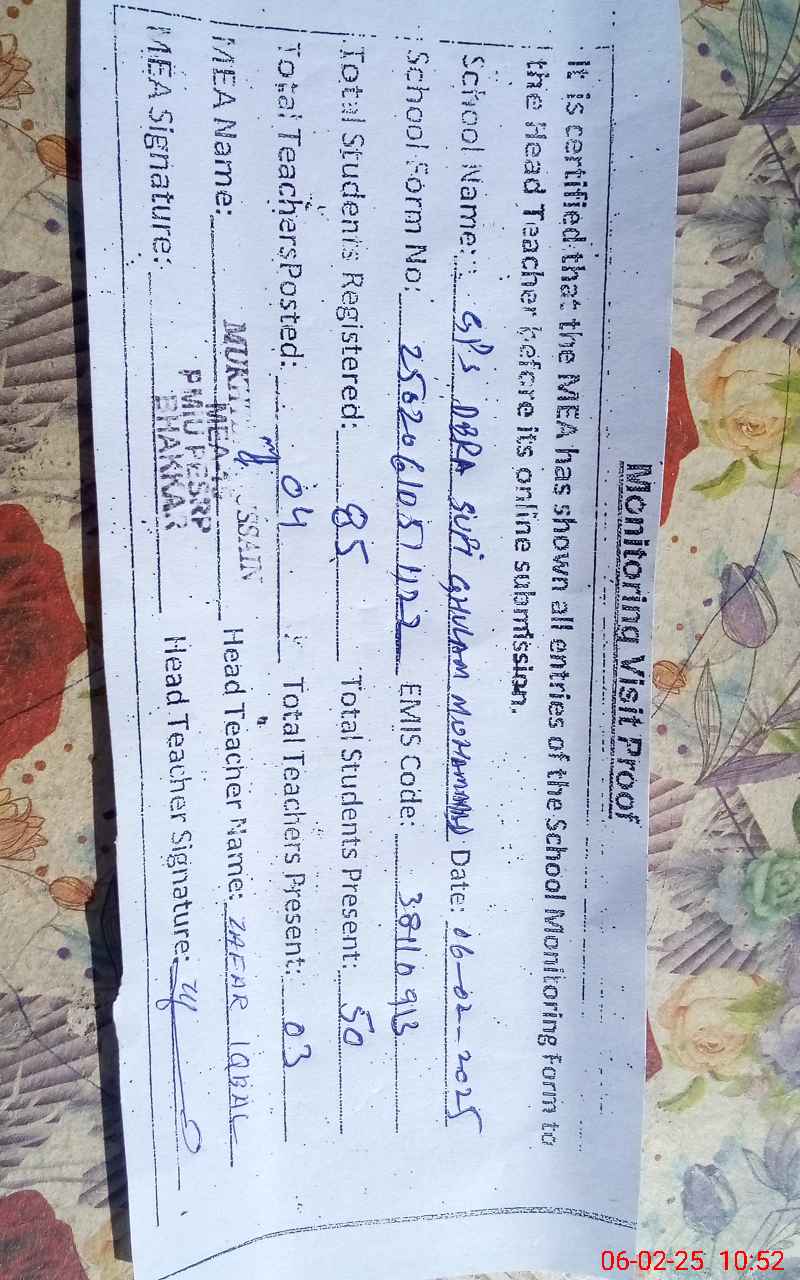 Monitoring Visit Proof
It is certified that the MEA has shown all entries of the School Monitoring Form to
the Head Teacher before its online submission.
School Name: GPS DERA SUFI GHULAM MOHAMMAD Date: 06-02-2025
School Form No: EMIS Code:
Total Students Registered: 85 Total Students Present: 50
Total Teachers Posted: 04 Total Teachers Present: 03
MEA Name: Head Teacher Name: ZAFAR IQBAL
MEA Signature: Head Teacher Signature:
PMIU PESRP
BHAKKAR
06-02-25 10:52